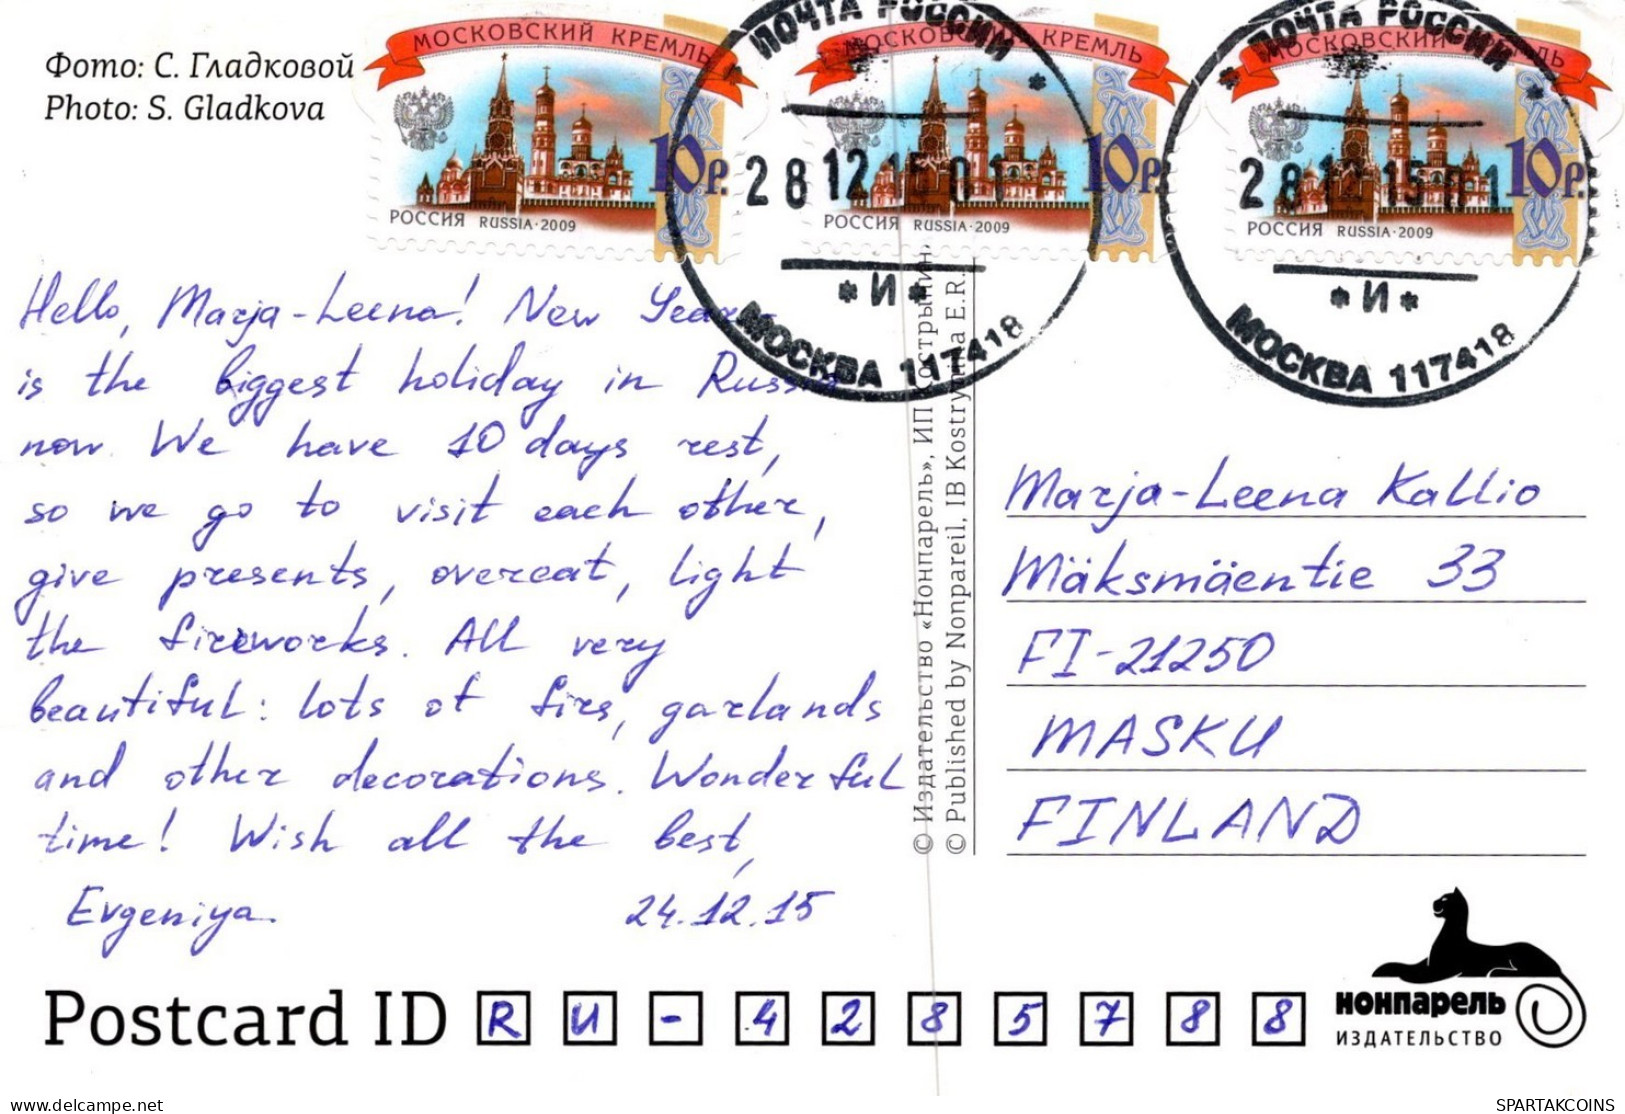 Фото: С. Гладковой
Photo: S. Gladkova
МОСКОВСКИЙ КРЕМЛЬ
10р.
РОССИЯ RUSSIA·2009
МОСКОВСКИЙ КРЕМЛЬ
10р.
РОССИЯ RUSSIA·2009
МОСКОВСКИЙ КРЕМЛЬ
10р.
РОССИЯ RUSSIA·2009
ПОЧТА РОССИИ
28 12 15 01
*И*
МОСКВА 117418
ПОЧТА РОССИИ
28 12 15 01
*И*
МОСКВА 117418
Hello, Marja-Leena! New Year
is the biggest holiday in Russia
now. We have 10 days rest,
so we go to visit each other,
give presents, overeat, light
the fireworks. All very
beautiful: lots of firs, garlands
and other decorations. Wonderful
time! Wish all the best,
Evgeniya. 24.12.15
© Издательство «Нонпарель», ИП Кострынин
© Published by Nonpareil, IB Kostrynina E.R.
Marja-Leena Kallio
Mäksmäentie 33
FI-21250
MASKU
FINLAND
Postcard ID RU-4285788
нонпарель
ИЗДАТЕЛЬСТВО
delcampe.net
SPARTAKCOINS